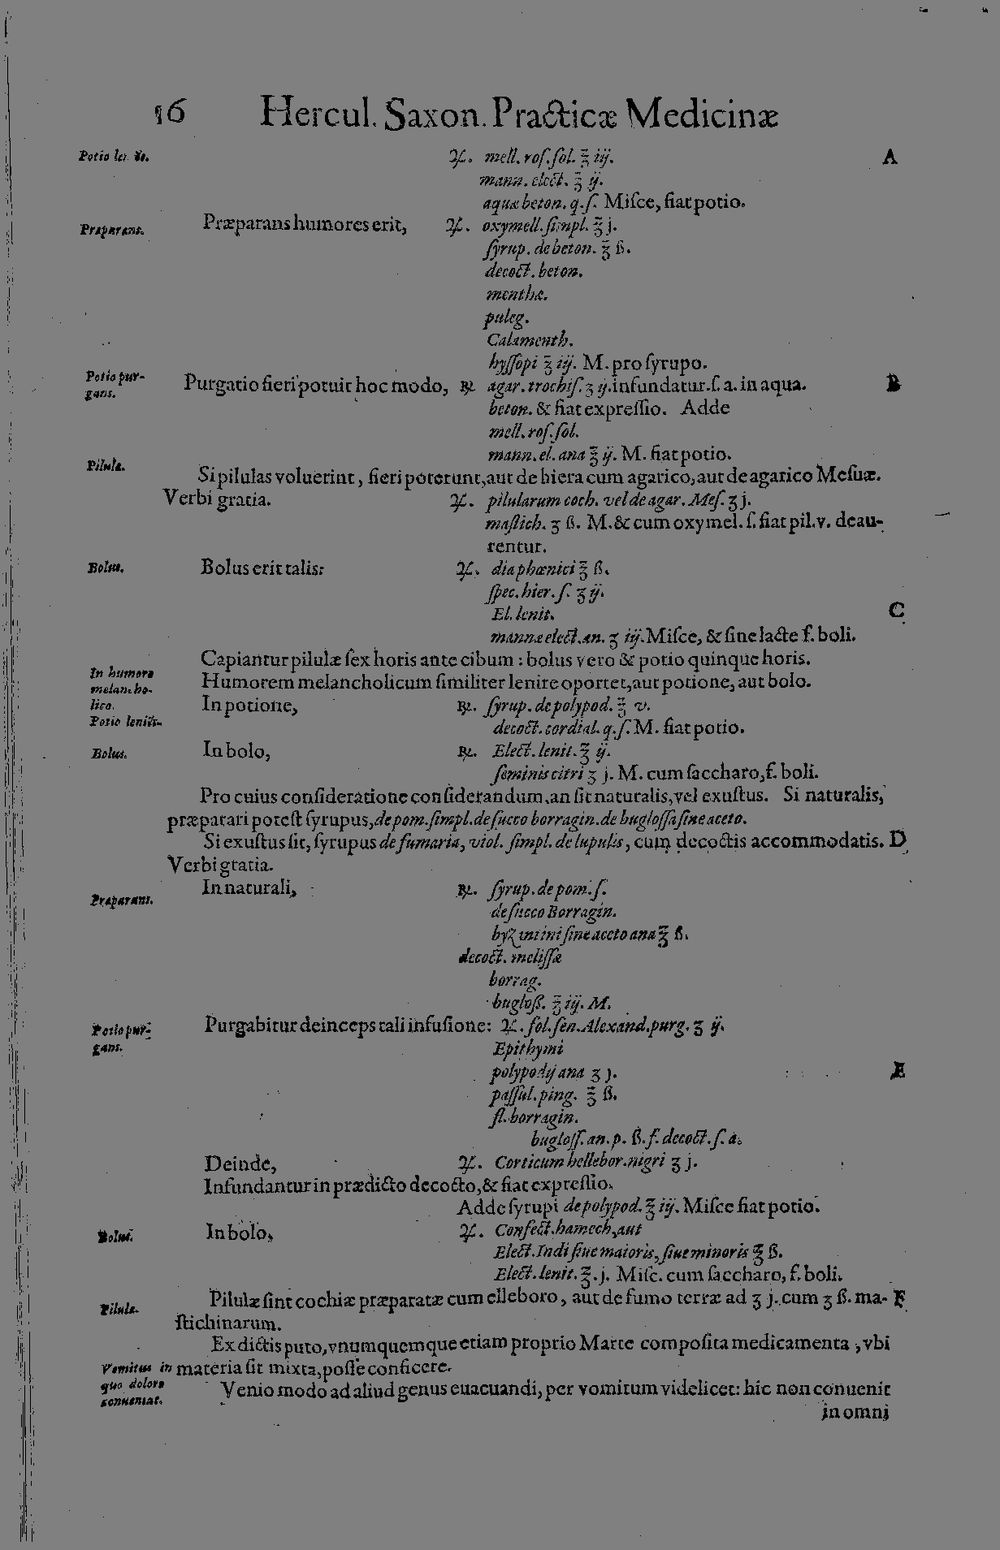 16 Hercul. Saxon. Practicæ Medicinæ
Potio le
♃. mell. roſ. ſol. ℥ iij. A
mann. elect. ℥ ij.
aquæ beton. q. ſ. Miſce, fiat potio.
Præparans.
Præparans humores erit, ♃. oxymell. ſimpl. ℥ j.
ſyrup. de beton. ℥ ß.
decoct. beton.
menthæ.
puleg.
Calamenth.
hyſſopi ℥ iij. M. pro ſyrupo.
Potio pur-
gans.
Purgatio fieri potuit hoc modo, ℞. agar. trochiſ. ʒ ij. infundatur. ſ. a. in aqua. B
beton. & fiat expreſſio. Adde
mell. roſ. ſol.
mann. el. ana ℥ ij. M. fiat potio.
Pilulæ.
Si pilulas voluerint, fieri poterunt, aut de hiera cum agarico, aut de agarico Meſuæ.
Verbi gratia. ♃. pilularum coch. vel de agar. Meſ. ʒ j.
maſtich. ʒ ß. M. & cum oxymel. ſ. fiat pil. v. deau-
rentur.
Bolus.
Bolus erit talis: ♃. diaphœnici ℥ ß.
ſpec. hier. ſ. ʒ ij.
El. lenit. C
mannæ elect. an. ʒ iij. Miſce, & ſine lacte f. boli.
Capiantur pilulæ ſex horis ante cibum: bolus vero & potio quinque horis.
In humore
melancho-
lico.
Potio leniẽs.
Humorem melancholicum ſimiliter lenire oportet, aut potione, aut bolo.
In potione, ℞. ſyrup. de polypod. ℥ v.
decoct. cordial. q. ſ. M. fiat potio.
Bolus.
In bolo, ℞. Elect. lenit. ℥ ij.
ſeminis citri ʒ j. M. cum ſaccharo, f. boli.
Pro cuius conſideratione conſiderandum, an ſit naturalis, vel exuſtus. Si naturalis,
præparari poteſt ſyrupus, de pom. ſimpl. de ſucco borragin. de bugloſſa ſine aceto.
Si exuſtus ſit, ſyrupus de fumaria, viol. ſimpl. de lupulis, cum decoctis accommodatis. D
Verbi gratia.
Præparans.
In naturali, ℞. ſyrup. de pom. ſ.
de ſucco Borragin.
byzantini ſine aceto ana ℥ ß.
decoct. meliſſæ
borrag.
bugloß. ℥ iij. M.
Potio pur-
gans.
Purgabitur deinceps tali infuſione: ♃. fol. ſen. Alexand. purg. ʒ ij.
Epithymi
polypodij ana ʒ j. E
paſſul. ping. ℥ ß.
fl. borragin.
bugloſſ. an. p. ß. f. decoct. ſ. a.
Deinde, ♃. Corticum hellebor. nigri ʒ j.
Infundantur in prædicto decocto, & fiat expreſſio.
Adde ſyrupi de polypod. ℥ iij. Miſce fiat potio.
Bolus.
In bolo, ♃. Confect. hamech, aut
Elect. Indi ſiue maioris, ſiue minoris ℥ ß.
Elect. lenit. ℥. j. Miſc. cum ſaccharo, f. boli.
Pilulæ.
Pilulæ ſint cochiæ præparatæ cum elleboro, aut de fumo terræ ad ʒ j. cum ʒ ß. ma- F
ſtichinarum.
Ex dictis puto, vnumquemque etiam proprio Marte compoſita medicamenta, vbi
materia ſit mixta, poſſe conficere.
Vomitus in
quo dolore
conueniat.
Venio modo ad aliud genus euacuandi, per vomitum videlicet: hic non conuenit
in omni